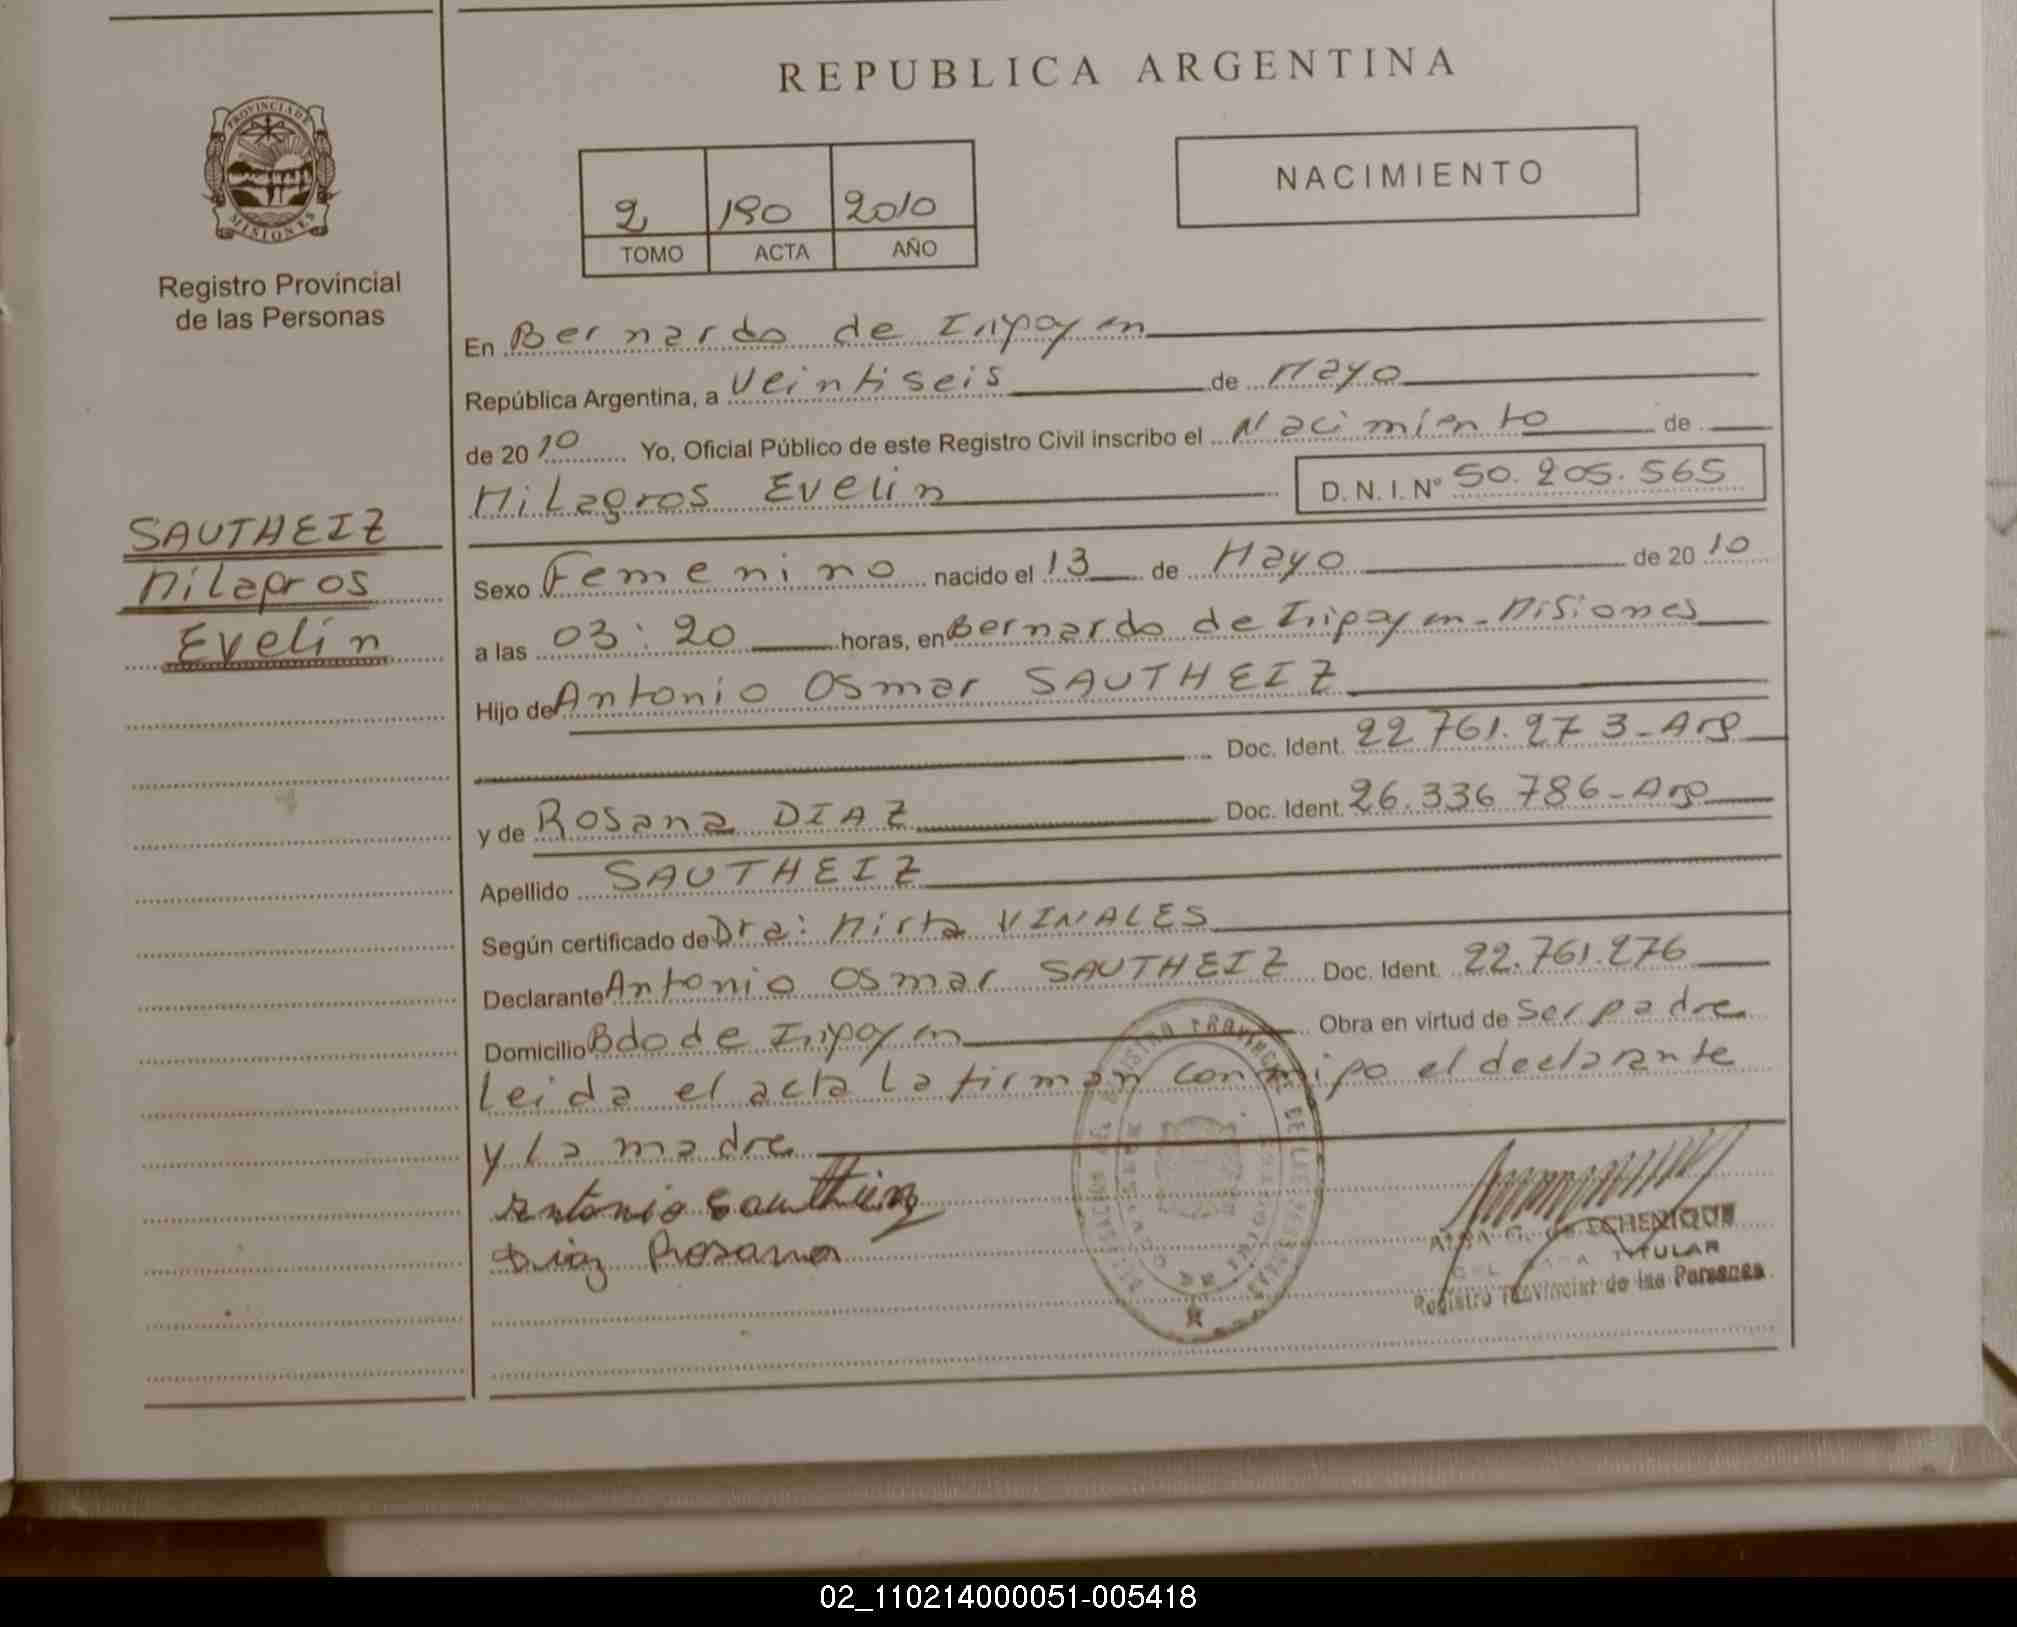 REPUBLICA ARGENTINA
PROVINCIA DE MISIONES
Registro Provincial
de las Personas
2 190 2010
TOMO ACTA AÑO
NACIMIENTO
SAUTHEIZ
Milagros
Evelin
En Bernardo de Irigoyen
República Argentina, a Veintiseis de Mayo
de 2010 Yo, Oficial Público de este Registro Civil inscribo el Nacimiento de
Milagros Evelin D. N. I. Nº 50.205.565
Sexo Femenino nacido el 13 de Mayo de 2010
a las 03:20 horas, en Bernardo de Irigoyen - Misiones
Hijo de Antonio Osmar SAUTHEIZ
Doc. Ident. 22.761.273 - Arg
y de Rosana DIAZ Doc. Ident. 26.336.786 - Arg
Apellido SAUTHEIZ
Según certificado de Dra: Mirta VINALES
Declarante Antonio Osmar SAUTHEIZ Doc. Ident. 22.761.276
Domicilio Bdo de Irigoyen Obra en virtud de ser padre
Leida el acta la firman conmigo el declarante
y la madre
Antonio Sautheiz
Diaz Rosana
ECHENIQUE
TITULAR
Registro Provincial de las Personas
02_110214000051-005418